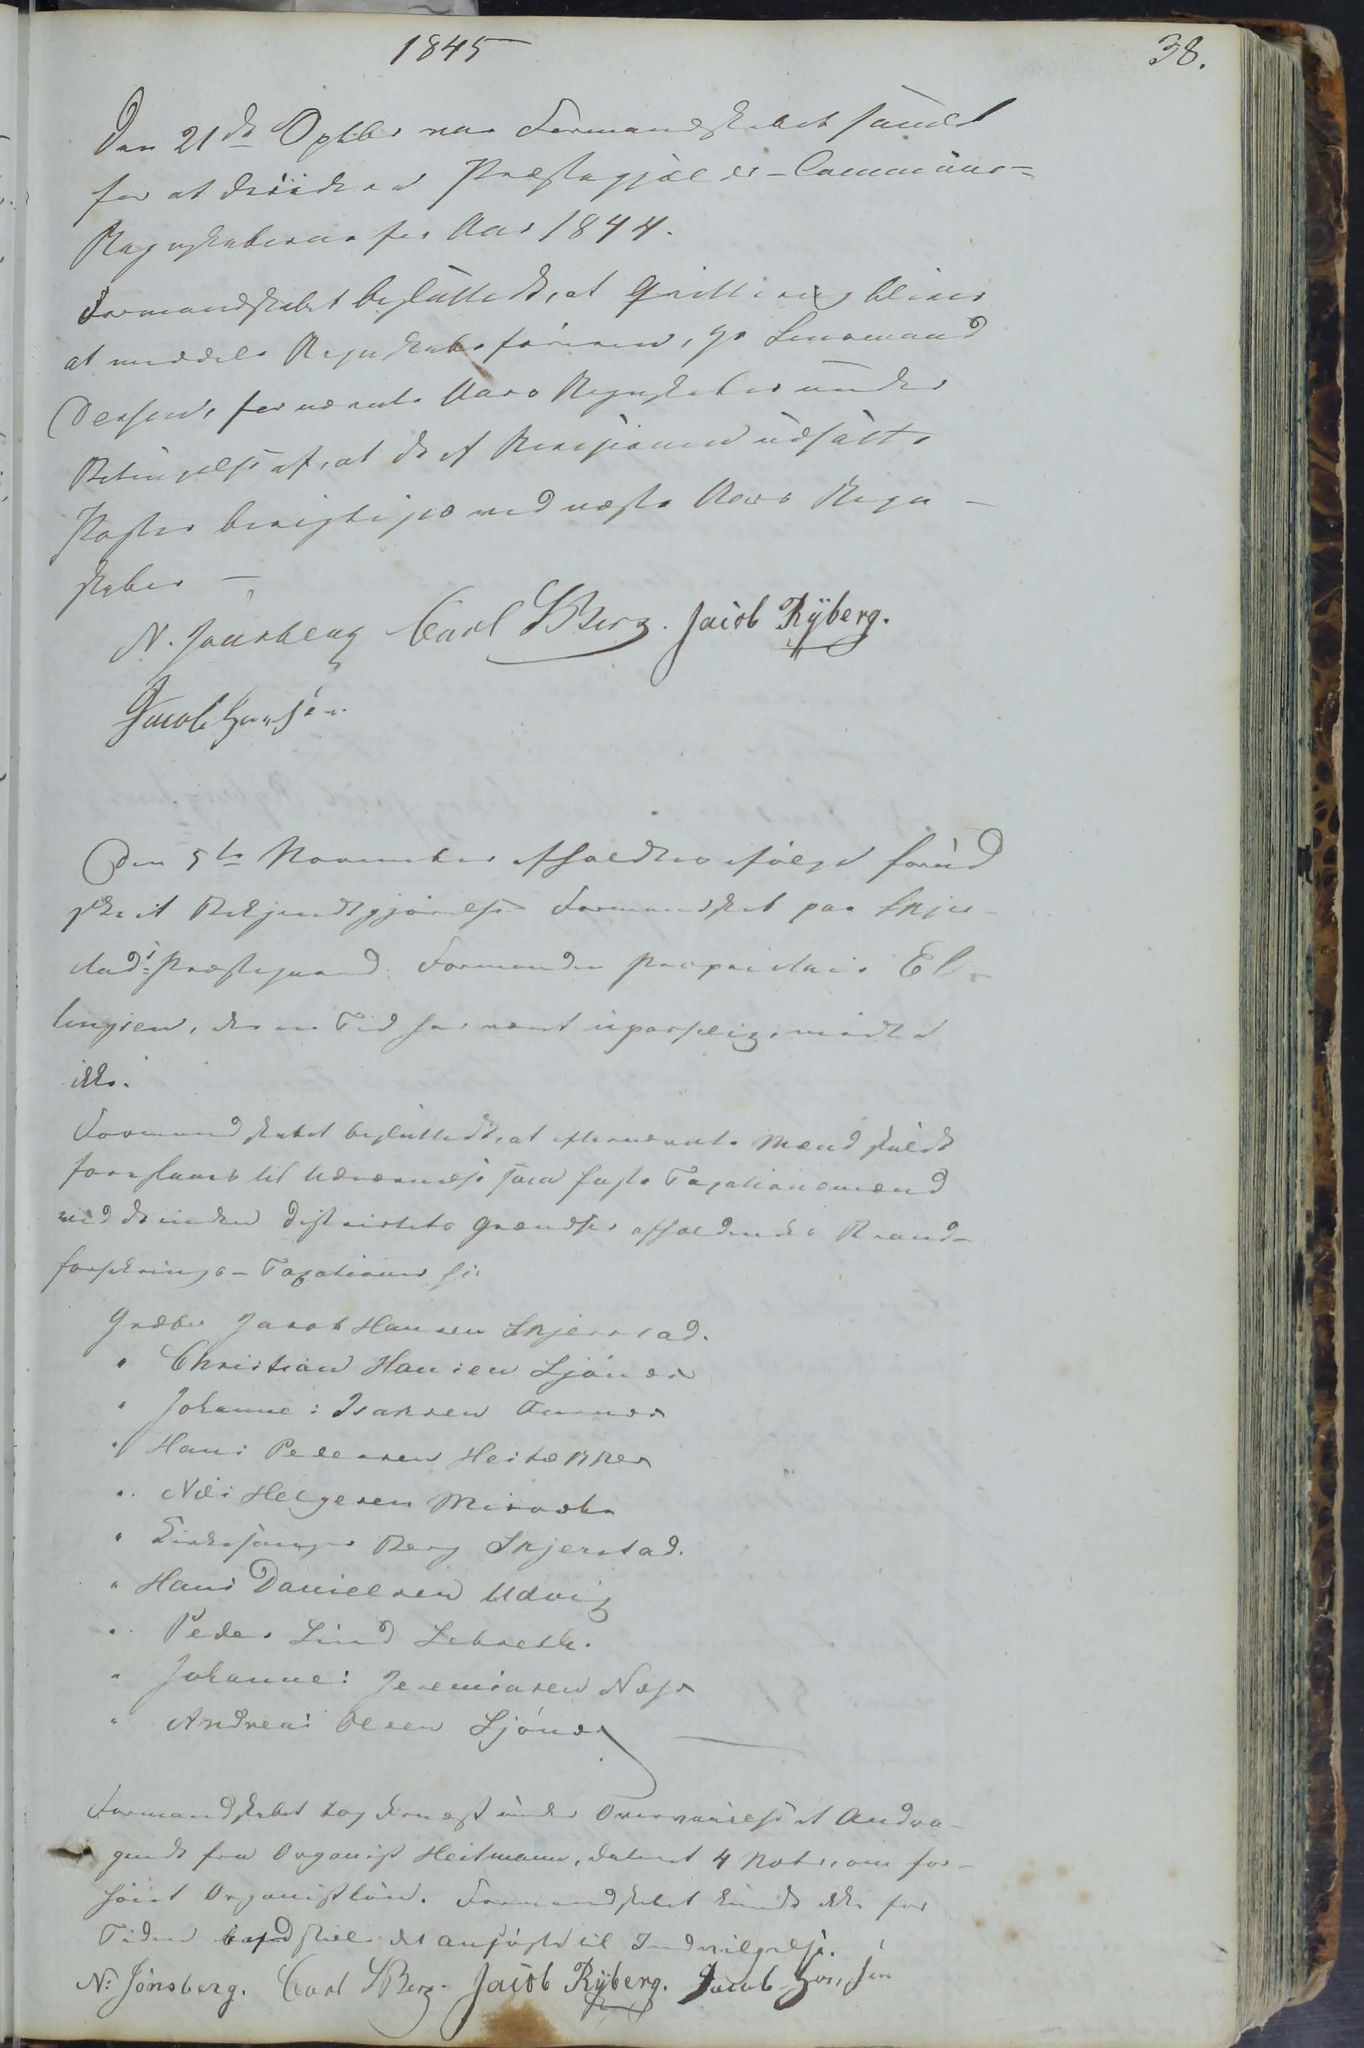 1845
38.
Den 21de Optbr var Formandskabet samlet
for at decidere Præstegjældets-Commune-
Regnskaberne for Aar 1844.
Formandskabet besluttede, at Qvittering bliver
at meddele Regnskabsføreren, Lensmand
for nævnte Aars Regnskaber under
Betingelse af, at de af Revisionen udsatte
Poster berigtiges ved næste Aars Regn-
skaber —
N. Jønsberg Carl S Berg. Jacob Rÿberg.
Jacob Hansen
Den 5te November afholdtes ifølge forud
skeet Bekjendtgjørelse Formandskab paa Skjer-
stads Præstegaard. Formanden Proprietair El-
lingsen, der en Tid har været upasselig, mødte
ikke.
Formandskabet besluttede, at efternævnte Mænd skulde
foreslaaes til Udnævnelse som faste Taxationsmænd
ved de inden Districtets Grændser afholdende Brand-
forsikrings-Taxationer
Grdbr Jacob Hansen Skjerstad.
" Christian Hansen Ljønes
" Johannes Isaksen
" Hans Pedersen
" Nils Helgesen Misvær
" Kirkesanger Berg Skjerstad.
" Hans Danielsen Udvig
" Peder Lund
" Johannes Jeremiasen Næss
" Andreas Olsen Ljønes —
Formandskabet tog dernæst under Overveielse et Andra-
gende fra Organist Heitmann, dateret 4 Novbr, om for-
høiet Organistløn. Formandskabet kunde ikke for
Tiden det ansøgte til Indvilgelse.
N: Jønsberg. Carl S Berg. Jacob Rÿberg. Jacob Hansen